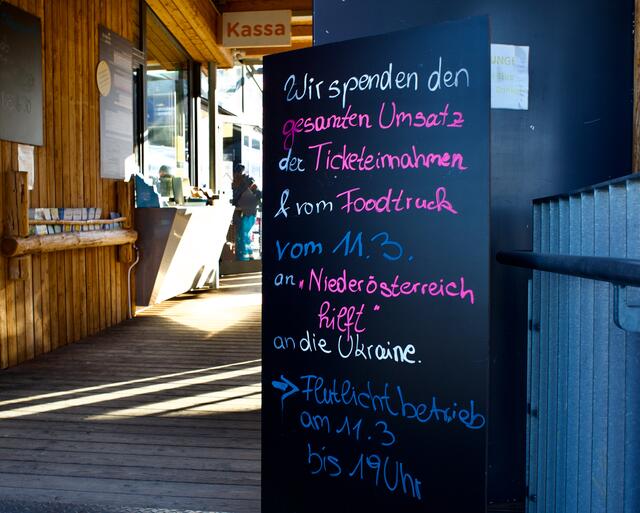 Kassa
Wir spenden den
gesamten Umsatz
der Ticketeinnahmen
& vom Foodtruck
vom 11.3.
an „Niederösterreich
hilft"
an die Ukraine.
→ Flutlichtbetrieb
am 11.3
bis 19 Uhr